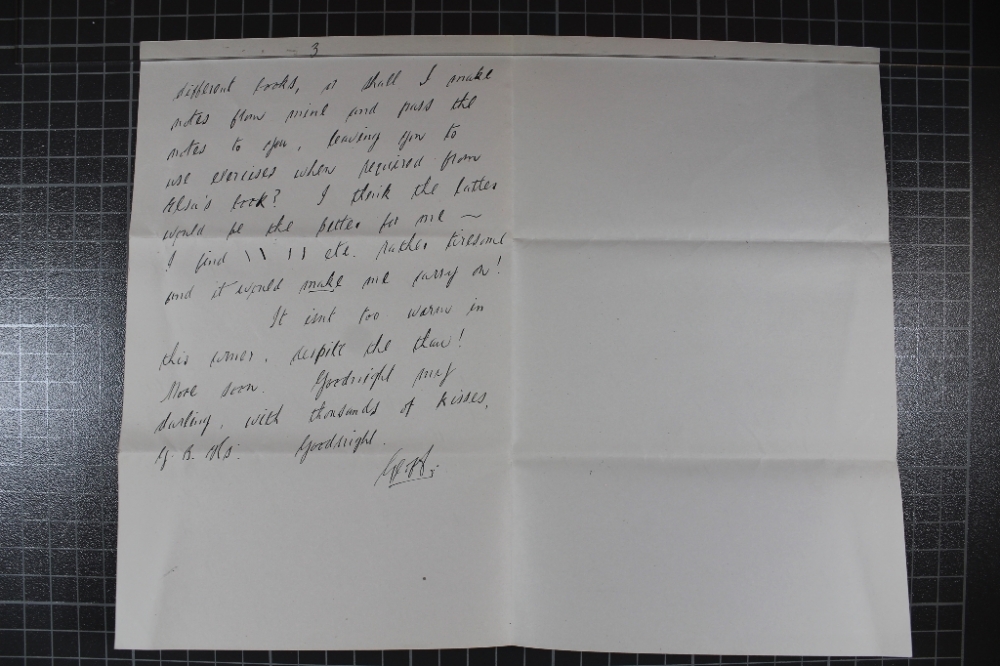 3
different books, or shall I make
notes from mine and pass the
notes to you, leaving you to
use exercises when required from
Elsa's book? I think the latter
would be the better for me ~
I find \ \ \ \ etc. rather tiresome
and it would make me carry on!
It isn't too warm in
this corner, despite the thaw!
More soon. Goodnight my
darling, with thousands of kisses,
Goodnight.